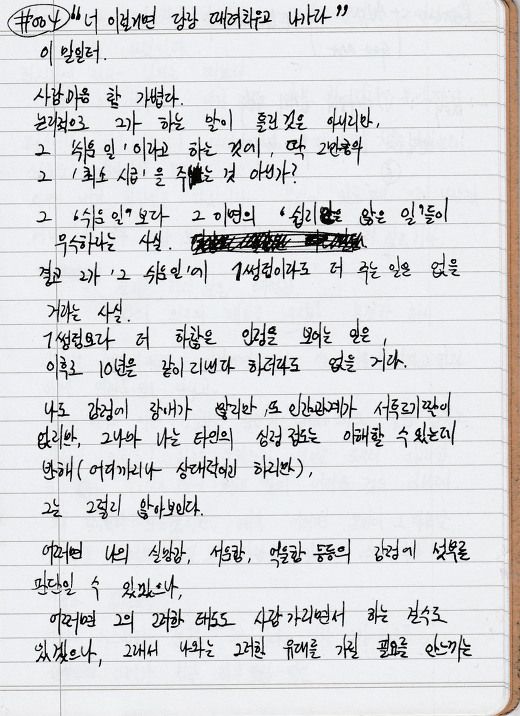 #004 "너 이럴거면 당장 때려치우고 나가라"
이 말일터.
사람마음 참 가볍다.
논리적으로 그가 하는 말이 틀린것은 아니리만,
그 '쉬운 일'이라고 하는 것에, 딱 그만큼의
그 '최소 시급'을 주는 것 아닌가?
그 "쉬운 일"보다 그 이면의 "쉽리 않은 일"들이
무수하다는 사실.
결코 그가 '그 쉬운일'에 1썽텀이라도 더 주는 일은 없을
거라는 사실.
1썽텀보다 더 하찮은 인정을 보이는 일은,
이후로 10년을 같이 리낸다 하더라도 없을 거다.
나도 감정에 장애가 있리만, 또 인간관계가 서투르기짝이
없리만, 그나마 나는 타인의 심정 정도는 이해할 수 있는데
반해(어디까리나 상대적이긴 하리만),
그는 그렇리 않아보인다.
어쩌면 나의 실망감, 서운함, 억울함 등등의 감정에 섯부른
판단일 수 있겠으나,
어쩌면 그의 그러한 태도도 사람가리면서 하는 걸수도
있겠으나, 그래서 나와는 그러한 유대를 가질 필요를 안느끼는